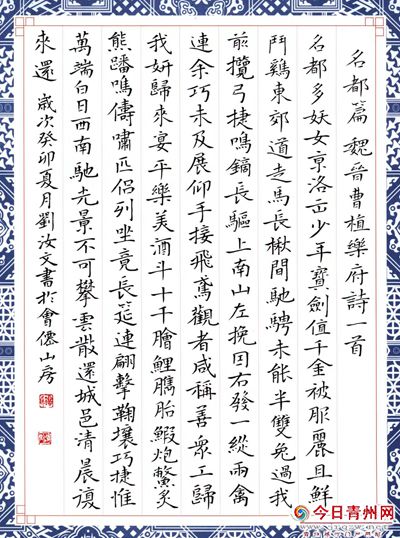 名都篇 魏晉曹植樂府詩一首
名都多妖女京洛出少年寶劍值千金被服麗且鮮
鬥鷄東郊道走馬長楸間馳騁未能半雙兔過我
前攬弓捷鳴鏑長驅上南山左挽因右發一縱兩禽
連余巧未及展仰手接飛鳶觀者咸稱善衆工歸
我妍歸來宴平樂美酒斗十千膾鯉臇胎鰕炮鱉炙
熊蹯鳴儔嘯匹侶列坐竟長筵連翩擊鞠壤巧捷惟
萬端白日西南馳光景不可攀雲散還城邑清晨復
來還 歲次癸卯夏月劉汝文書於會僊山房
今日青州网